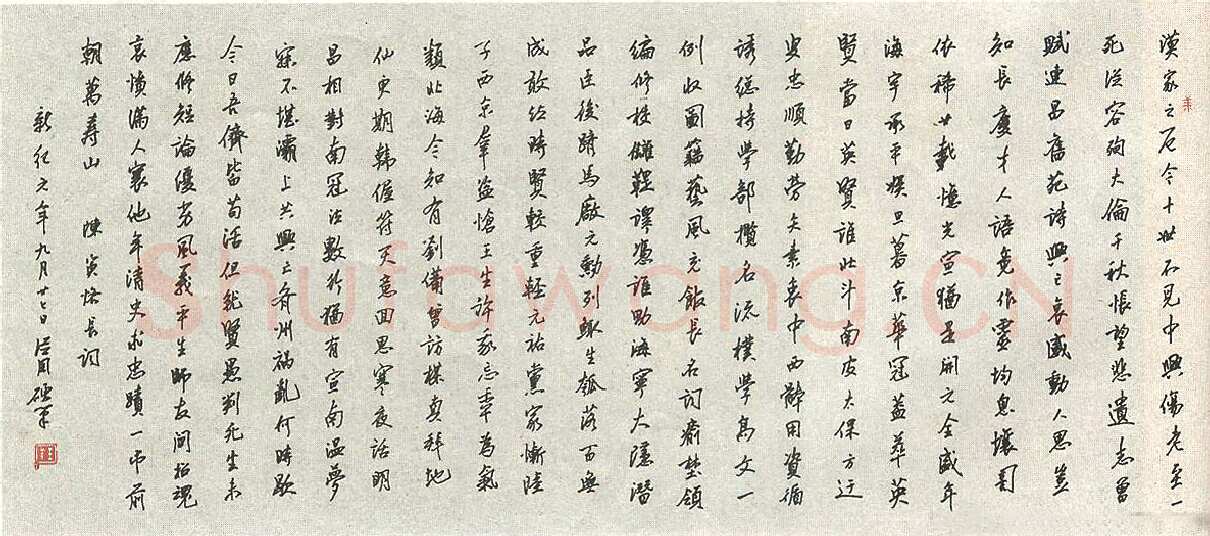 漢家之厄今十世不見中興傷老至一
死從容殉大倫千秋悵望悲遺志曾
賦連昌舊苑詩興亡哀感動人思豈
知長慶才人語竟作靈均息壤詞
依稀廿載憶光宣猶是開元全盛年
海宇承平娛旦暮京華冠蓋萃英
賢當日英賢誰北斗南皮太保方迂
叟忠順勤勞矢素衷中西體用資循
誘總持學部攬名流樸學高文一
例收圖籍藝風充館長名詞瘉壄領
編修校讎鞮譯憑誰助海寧大隱潛
品臣後躋馬廠元勳列鯫生瓠落百無
成敢並時賢較重輕元祐黨家慚陸
子西京羣盜愴王生許我忘年為氣
類北海今知有劉備曾訪楳真拜地
仙更期韓偓符天意回思寒夜話明
昌相對南冠泣數行猶有宣南温夢
寐不堪灞上共興亡齊州禍亂何時歇
今日吾儕皆苟活但就賢愚判死生未
應修短論優劣風義平生師友間招魂
哀憤滿人寰他年清史求忠蹟一弔前
朝萬壽山　陳寅恪長詞
新紀元年九月廿七日
Shufawang.CN